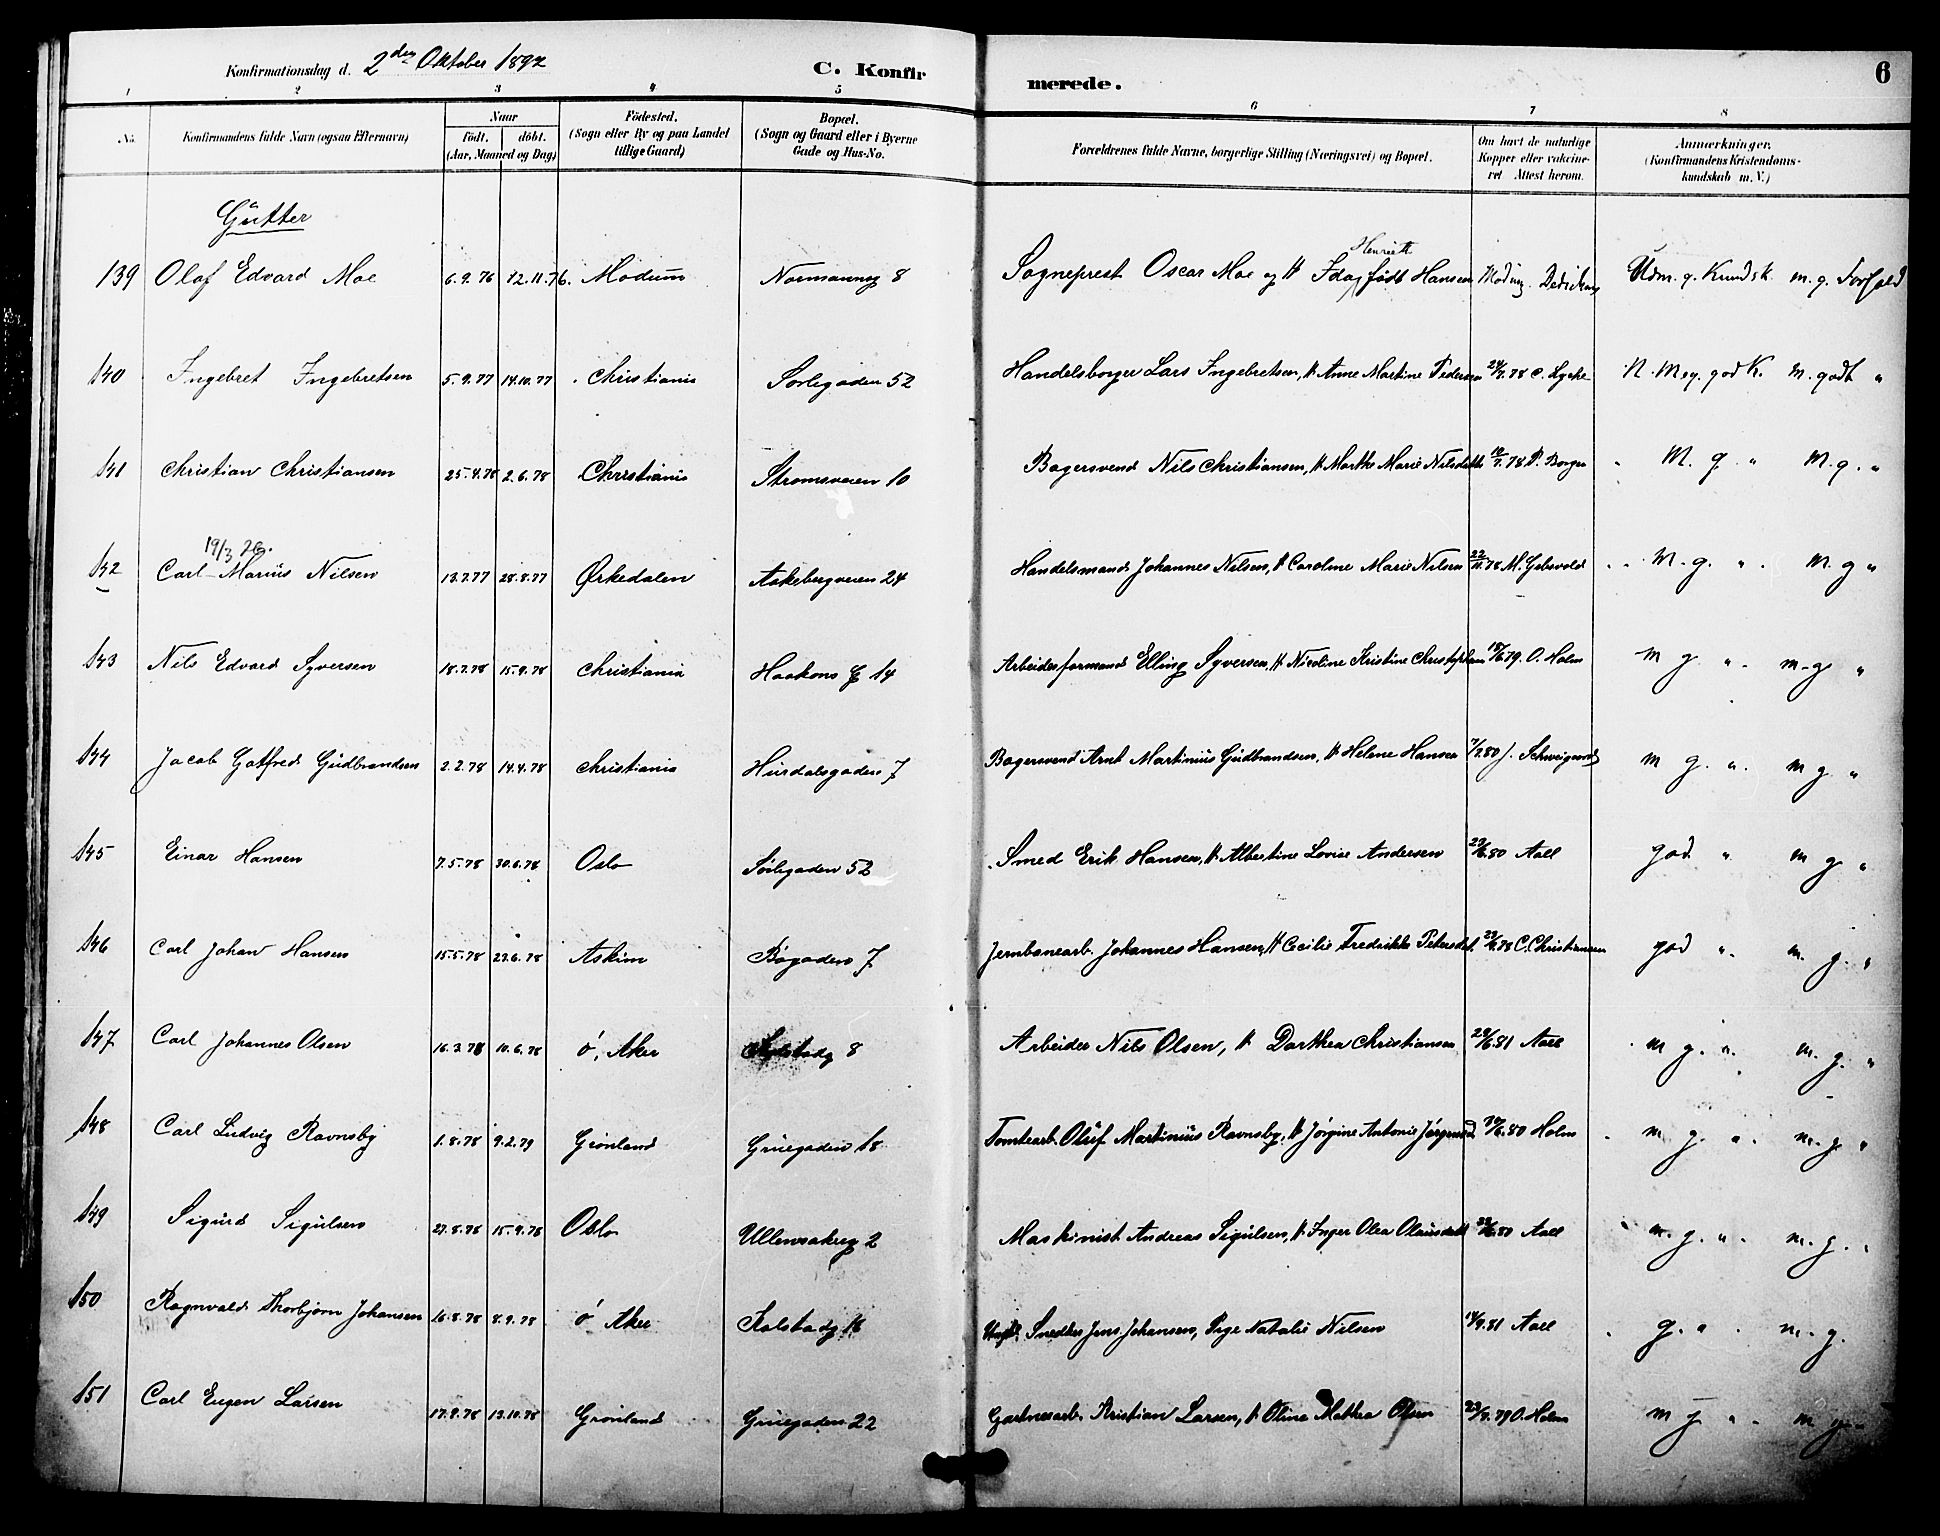 Konfirmationsdag d. 2den Oktober 1892 C. Konfirmerede. 6
1 2 3 4 5 6 7 8
No. Konfirmandens fulde Navn (ogsaa Efternavn) Naar født. døbt. (Aar, Maaned og Dag) Fødested. (Sogn eller By og paa Landet tillige Gaard) Bopæl. (Sogn og Gaard eller i Byerne Gade og Hus-No. Forældrenes fulde Navne, borgerlige Stilling (Næringsvei) og Bopæl. Om havt de naturlige Kopper eller vakcineret Attest herom. Anmærkninger. (Konfirmandens Kristendomskundskab m. V.)
Gutter
139 Olaf Edvard Moe 6.9.76 12.11.76. Modum Normannsg 8 Sogneprest Oscar Moe og H. Ida Henriett født Hansen Udm. g. Kundsk. m. g. Forhold
140 Ingebret Ingebretsen 5.9.77 14.10.77 Christiania Sorligaden 52 Handelsborger Lars Ingebretsen, H. Anne Martine Pedersen m. godt "
141 Christian Christiansen 25.4.78 2.6.78 Christiania Strømsveien 10 Bagersvend Nils Christiansen, H. Marthe Marie Nilsdatt P. Borger M. g. " M. g. "
19/3 26.
142 Carl Marius Nilsen 13.7.77 28.8.77 Ørkedalen Aakebergveien 24 Handelsmand Johannes Nilsen, H. Caroline Marie Nilsen M. g. " M. g "
143 Nils Edvard Syversen 18.7.78 15.9.78 Christiania Haakons G 14 Arbeidsformand Elling Syversen, H. Nicoline Kristine O. Holm m g " m-g "
144 Jacob Gotfred Gudbrandsen 2.2.78 14.4.78 Christiania Hurdalsgaden 7 Bagersvend Arnt Martinius Gudbrandsen, H. Helene Hansen m g. " m g "
145 Einar Hansen 7.5.78 30.6.78 Oslo Sørligaden 52 Smed Erik Hansen, H. Albertine Lovise Andersen 80 Aall god " m g "
146 Carl Johan Hansen 15.5.78 23.6.78 Askim Bøgaden 7 Jernbanearb. Johannes Hansen, H. Cecilie Fredrikke Petersdat. C. Christiansen god " m. g. "
147 Carl Johannes Olsen 16.3.78 10.6.78 Ø. Aker 8 Arbeider Nils Olsen, H. Dorthea Christiansen 81 Aall m g. " m. g. "
148 Carl Ludvig Ravnsby 1.8.78 9.2.79 Grønland Gruegaden 18 Tomtearb. Oluf Martinius Ravnsby, H. Jørgine Antonie 80 Holm m. g. " m. g "
149 Sigurd Sigulsen 27.8.78 15.9.78 Oslo Ullensakerg 2 Maskinist Andreas Sigulsen, H. Inger Olea Olausdatt 80 Aall m. g. " m. g. "
150 Ragnvald Thorbjørn Johansen 16.8.78 8.9.78 Ø Aker Kolstadg 16 Ungk. Snedker Jens Johansen, Pige Natalie Nilsen 81 Aall g. " m. g.
151 Carl Eugen Larsen 17.9.78 13.10.78 Grønland Gruegaden 22 Gartnerarb. Kristian Larsen, H. Oline Mathea Olsen 79 O. Holm m g " m g